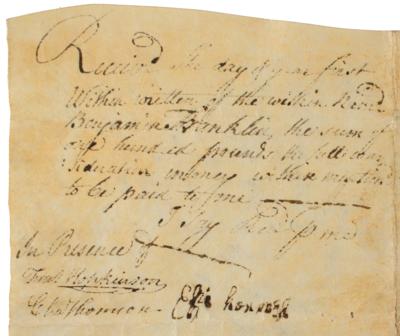 Received the day & year first
Within written of the within Named
Benjamin Franklin, the sum of
one hundred pounds the full con-
sideration money within mention'd
to be paid to me
I say Rec'd p me
In Presence of
Hopkinson
Thomson